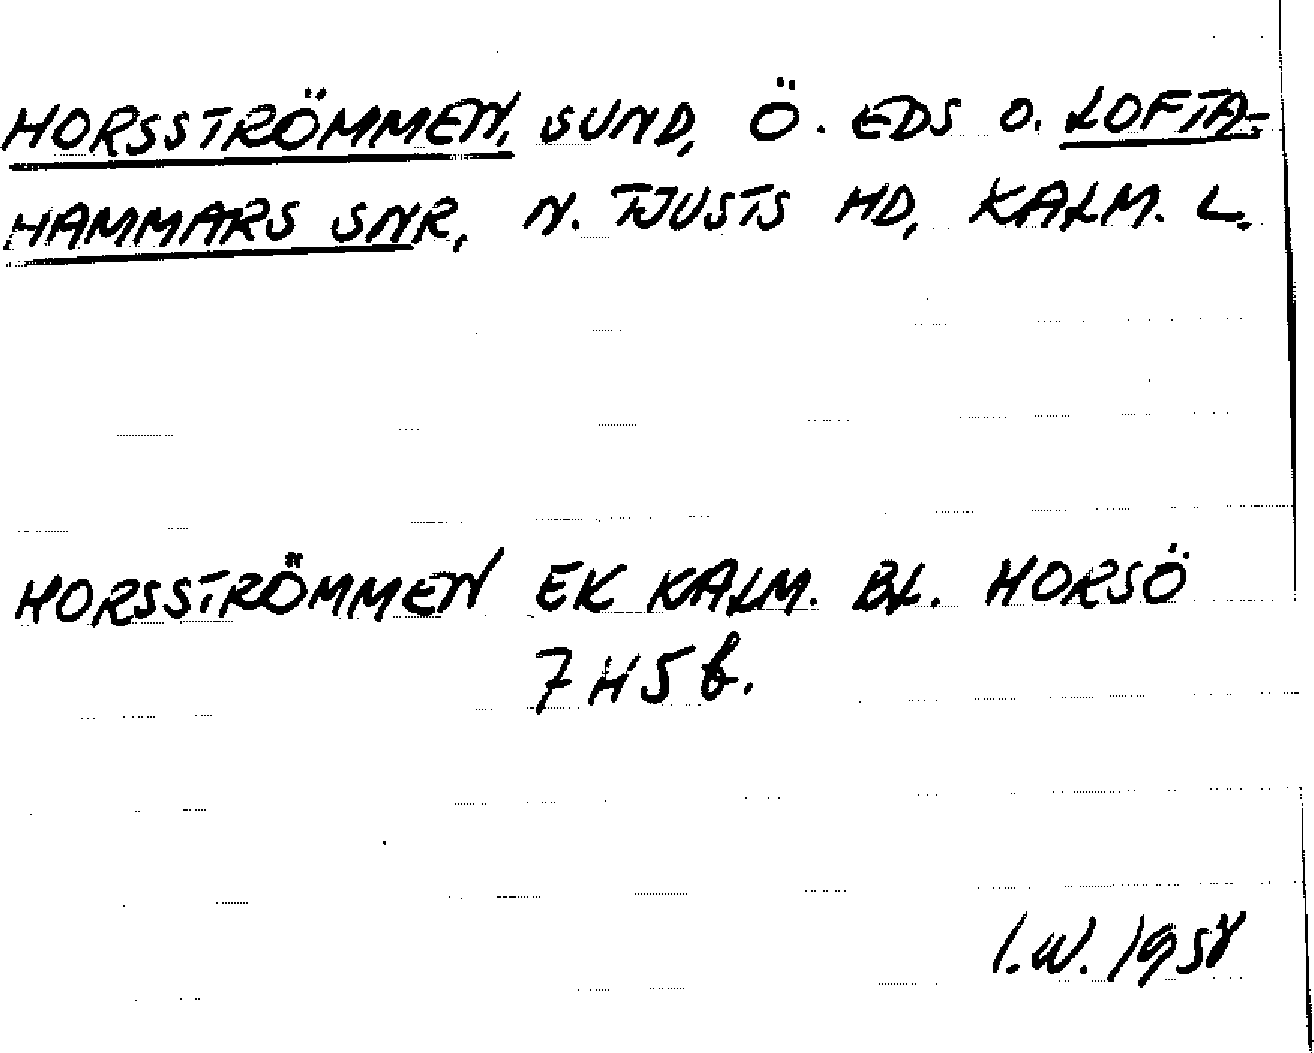 HORSSTRÖMMEN, SUND, Ö. EDS O. LOFTA-
HAMMARS SNR, N. TJUSTS HD, KALM. L.
HORSSTRÖMMEN EK KALM. BL. HORSÖ
7H5b.
I.W. 1958